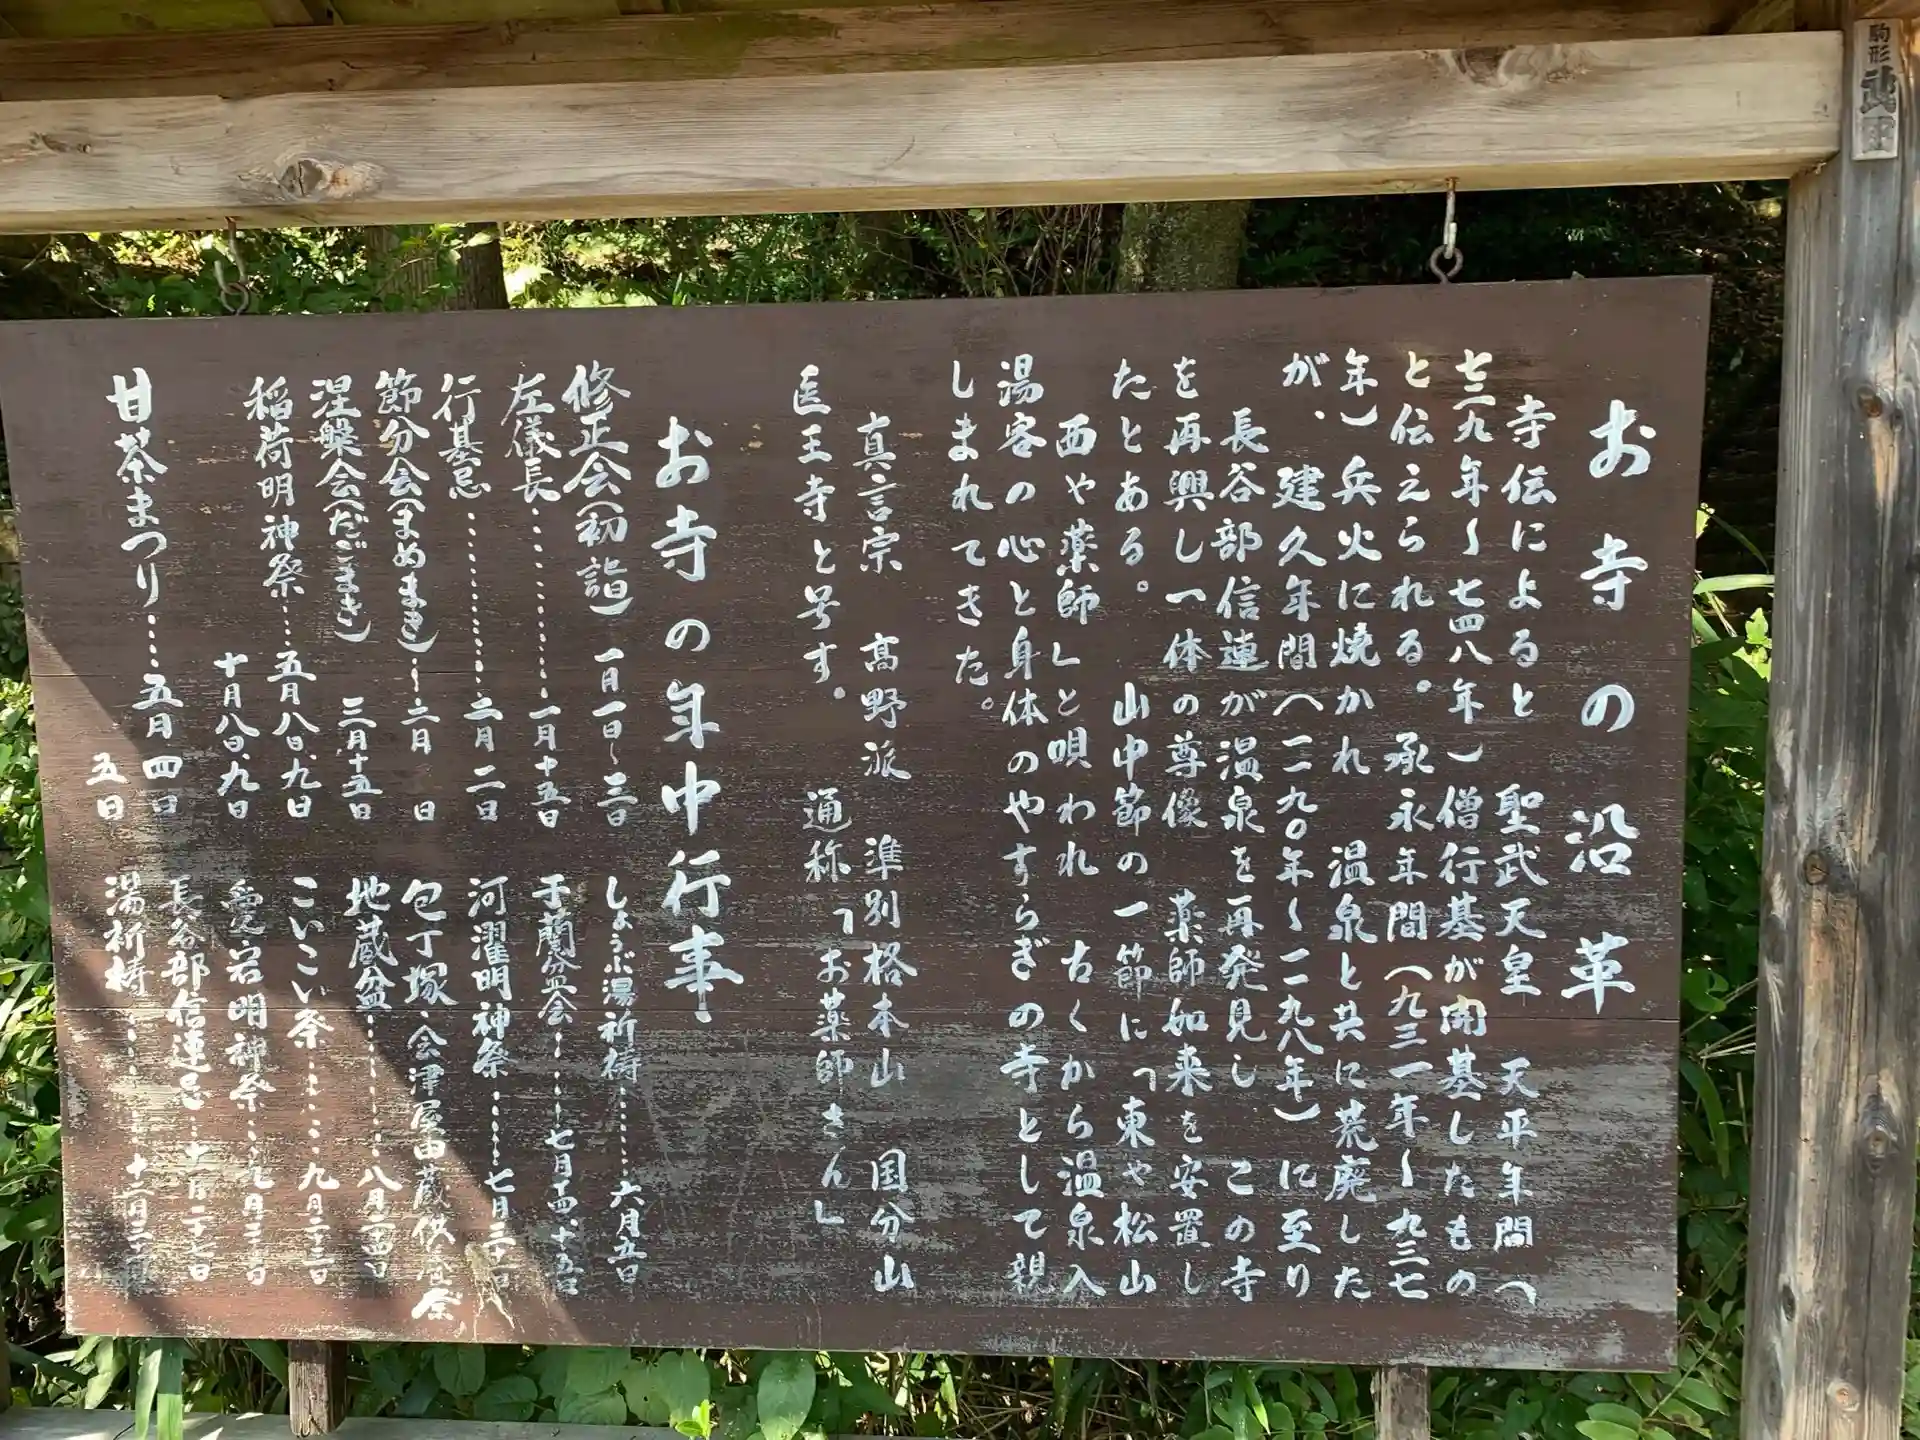 お寺の沿革
寺伝によると 聖武天皇 天平年間(
七二九年〜七四八年)僧行基が開基したもの
と伝えられる。承永年間(九三一年〜九三七
年)兵火に焼かれ 温泉と共に荒廃した
が、建久年間(一一九〇年〜一一九八年)に至り
長谷部信連が温泉を再発見し この寺
を再興し一体の尊像 薬師如来を安置し
たとある。 山中節の一節に「東や松山
西や薬師」と唄われ 古くから温泉入
湯客の心と身体のやすらぎの寺として親
しまれてきた。
真言宗 高野派 準別格本山 国分山
医王寺と号す。 通称「お薬師さん」
お寺の年中行事
修正会(初詣)一月一日〜三日
左儀長…………一月十五日
行基忌…………二月二日
節分会(まめまき)……二月 日
涅槃会(だごまき) 三月十五日
稲荷明神祭……五月八日、九日
十月八日、九日
甘茶まつり……五月四日
五日
しょうぶ湯祈祷……六月五日
于蘭盆会………七月十四、十五日
河濯明神祭……七月三十一日
包丁塚・会津屋由蔵供養祭
地蔵盆…………八月二十四日
こいこい祭………九月二十三日
愛宕明神祭……九月二十三日
長谷部信連忌…十月二十七日
湯祈祷………十二月
駒形